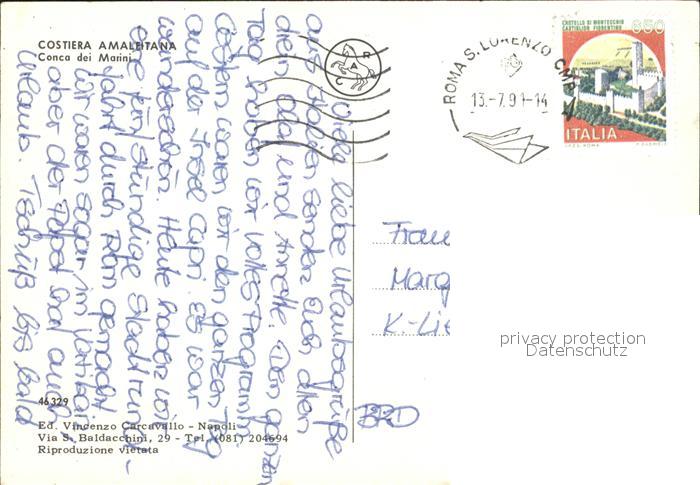 COSTIERA AMALFITANA
Conca dei Marini
Viele liebe Urlaubsgrüße
aus Italien senden Euch allen
die und Annette. Den ganzen
Tag haben wir volles Programm.
Gestern waren wir den ganzen Tag
auf der Insel Capri. Es war
wunderschön. Heute haben wir
eine fünfstündige Stadtrund-
fahrt durch Rom gemacht
wir waren sogar im Vatikan,
aber der Papst hat auch
Urlaub. Tschüß bis bald
46329
Ed. Vincenzo Carcavallo - Napoli
Via S. Baldacchini, 29 - Tel. (081) 204694
Riproduzione vietata
R
A
C
ROMA S. LORENZO CMP
13.-7.91-14
CASTELLO DI MONTECCHIO
CASTIGLION FIORENTINO
650
ITALIA
I.P.Z.S. ROMA
Frau
Marg
K-Lie
BRD
privacy protection
Datenschutz